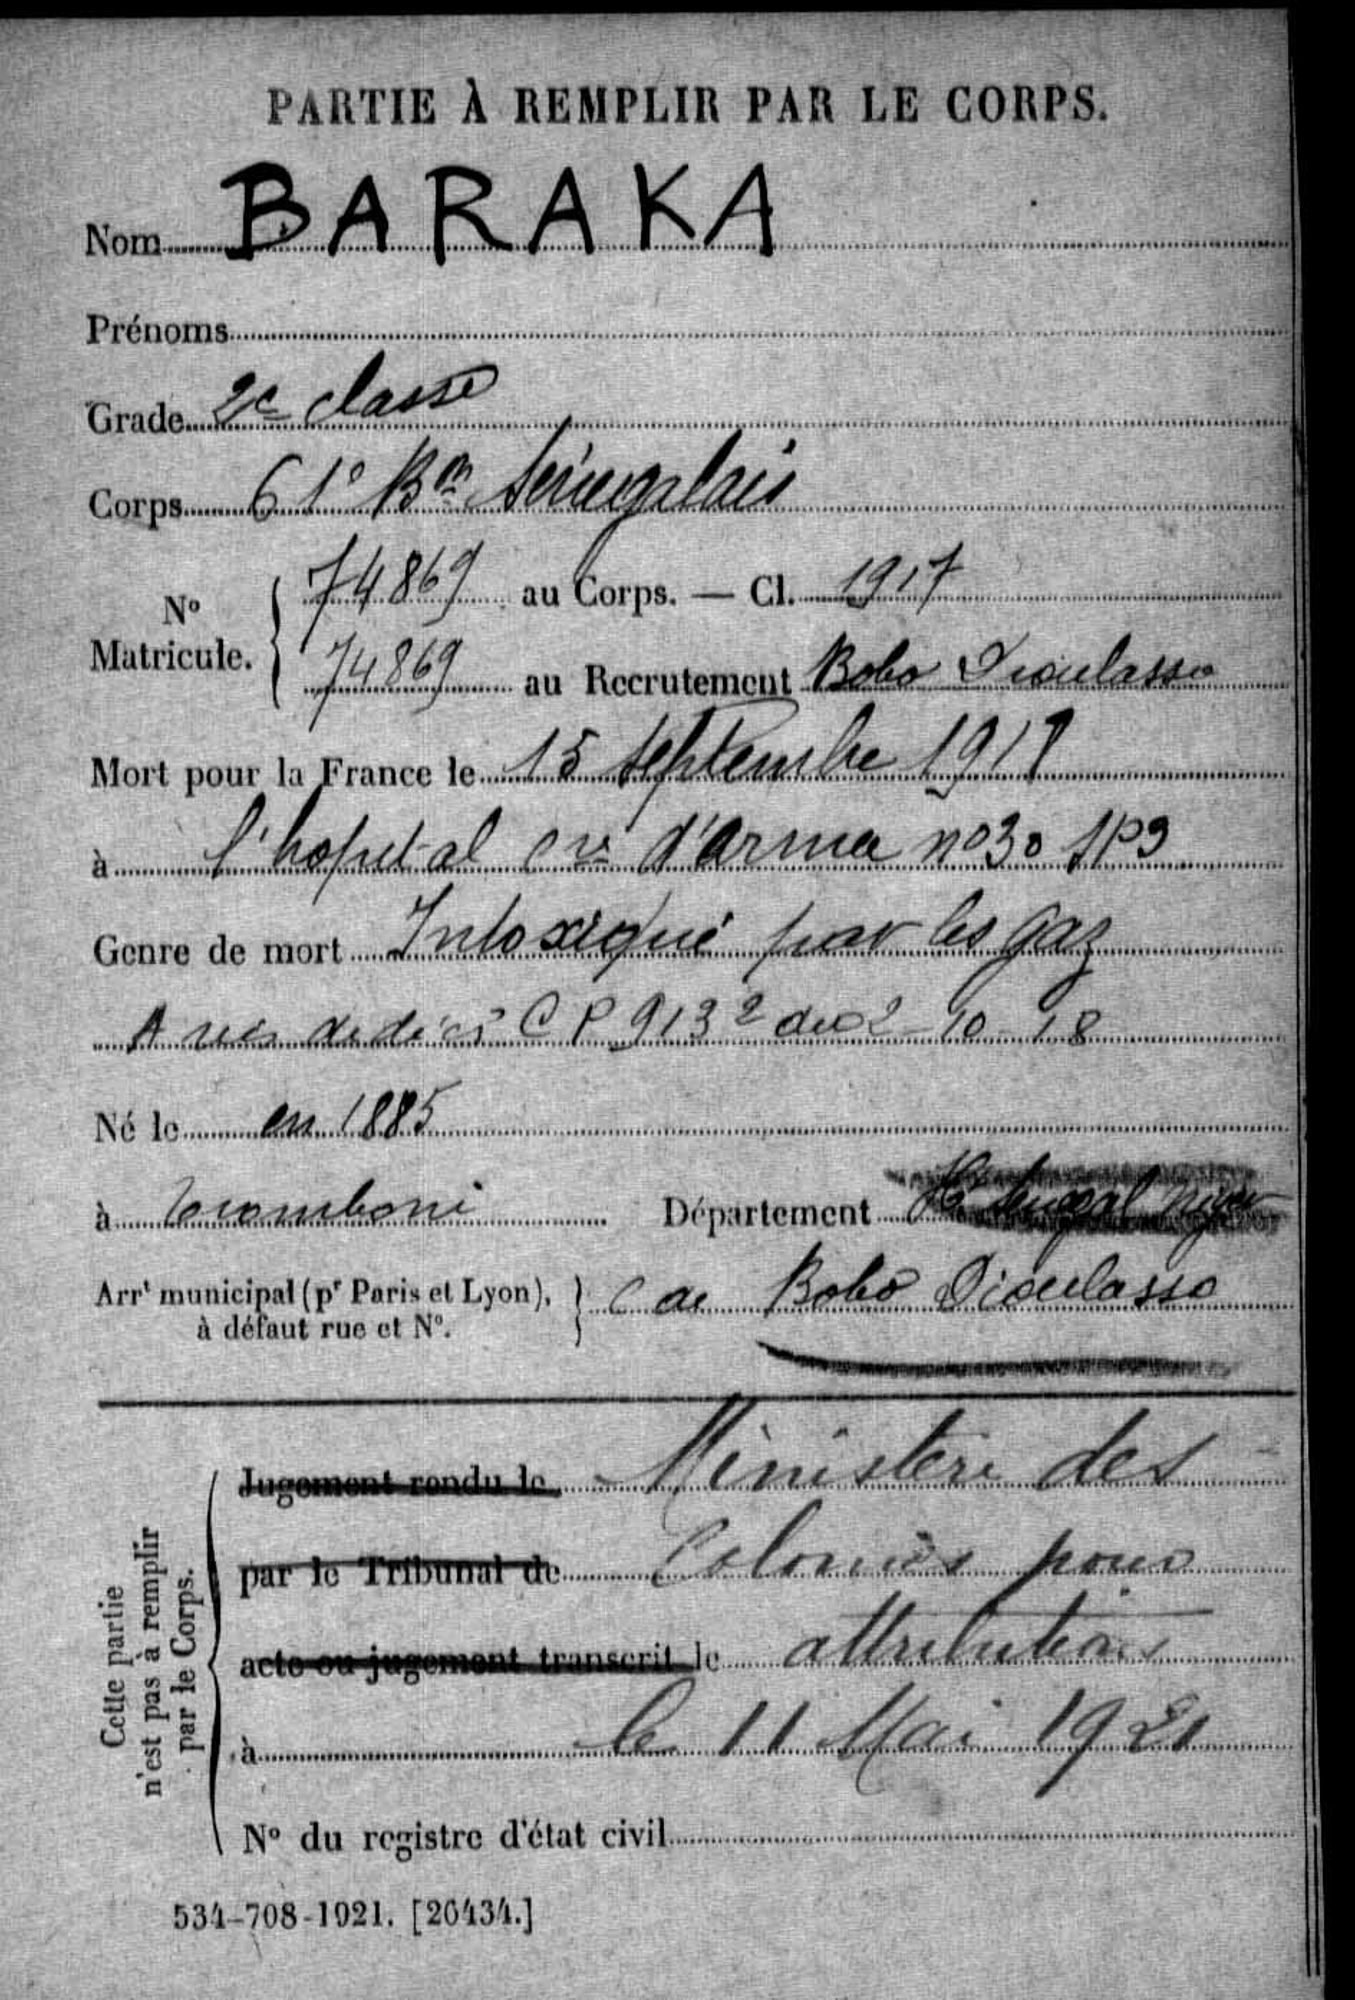 PARTIE À REMPLIR PAR LE CORPS.
Nom BARAKA
Prénoms
Grade 2e classe
Corps 61e Bon Sénégalais
No Matricule. 74869 au Corps. — Cl. 1917
74869 au Recrutement Bobo Dioulasso
Mort pour la France le 15 septembre 1918
à l'hopital d'armée no 30 SP3
Genre de mort Intoxiqué par les gaz
Avis de décès CP 9132 du 2-10-18
Né le en 1885
à Département Ht Sénégal Niger
Arrt municipal (pr Paris et Lyon), à défaut rue et No. C de Bobo Dioulasso
Cette partie n'est pas à remplir par le Corps.
Jugement rendu le Ministère des
par le Tribunal de Colonies pour
acte ou jugement transcrit le attribution
à le 11 Mai 1921
No du registre d'état civil
534-708-1921. [26434.]